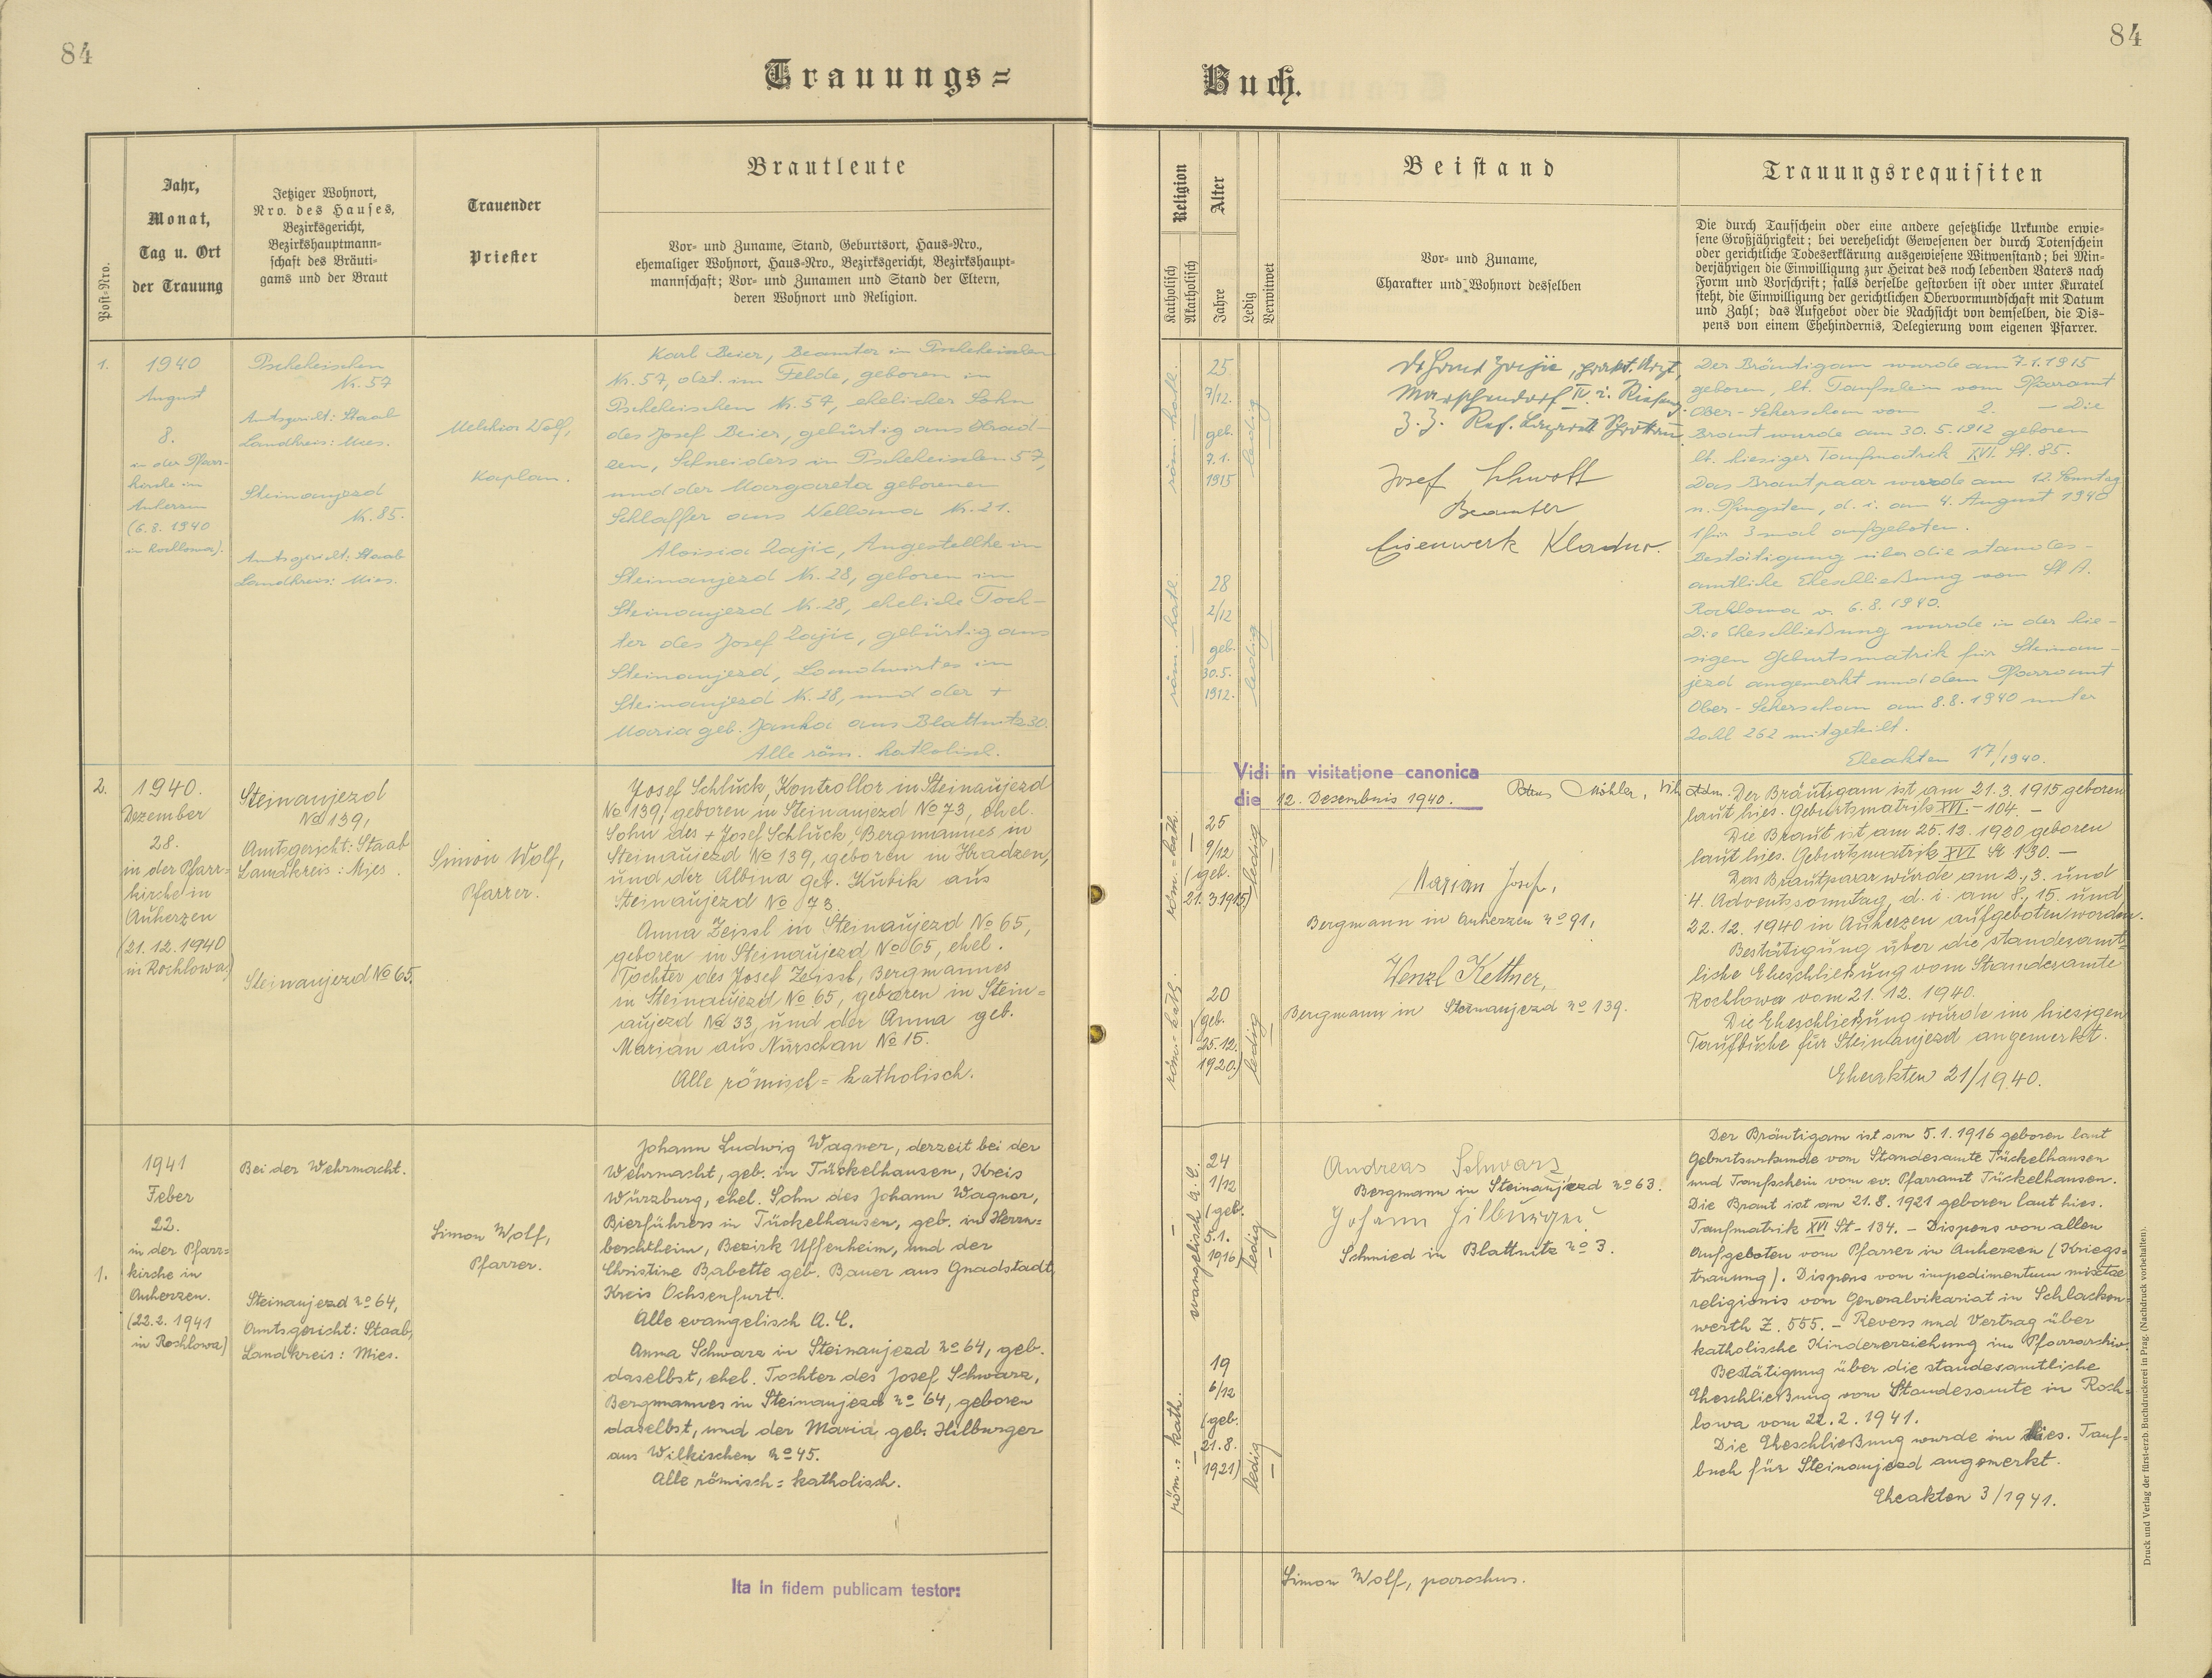 84
84
Trauungs=
Buch.
Post-Nro.
Jahr,
Monat,
Tag u. Ort
der Trauung
Jetziger Wohnort,
Nro. des Hauses,
Bezirksgericht,
Bezirkshauptmann-
schaft des Bräuti-
gams und der Braut
Trauender
Priester
Brautleute
Vor- und Zuname, Stand, Geburtsort, Haus-Nro.,
ehemaliger Wohnort, Haus-Nro., Bezirksgericht, Bezirkshaupt-
mannschaft; Vor- und Zunamen und Stand der Eltern,
deren Wohnort und Religion.
Religion
Katholisch
Akatholisch
Alter
Jahre
Ledig
Verwitwet
Beistand
Vor- und Zuname,
Charakter und Wohnort desselben
Trauungsrequisiten
Die durch Taufschein oder eine andere gesetzliche Urkunde erwie-
sene Großjährigkeit; bei verehelicht Gewesenen der durch Totenschein
oder gerichtliche Todeserklärung ausgewiesene Witwenstand; bei Min-
derjährigen die Einwilligung zur Heirat des noch lebenden Vaters nach
Form und Vorschrift; falls derselbe gestorben ist oder unter Kuratel
steht, die Einwilligung der gerichtlichen Obervormundschaft mit Datum
und Zahl; das Aufgebot oder die Nachsicht von demselben, die Dis-
pens von einem Ehehindernis, Delegierung vom eigenen Pfarrer.
1.
1940
August
8.
in der Pfarr-
kirche in
Auherzen
(6.8.1940
in Rochlowa).
Pscheheischen
Nr. 57
Amtsgericht: Staab
Landkreis: Mies.
Steinaujezd
Nr. 85.
Amtsgericht: Staab
Landkreis: Mies.
Melchior Wolf,
Kaplan.
Karl Beier, Beamter in Pscheheischen
Nr. 57, dzt. im Felde, geboren in
Pscheheischen Nr. 57, ehelicher Sohn
des Josef Beier, gebürtig aus Hrad-
zen, Schneiders in Pscheheischen 57,
und der Margareta geborenen
Schlaffer aus Wellowa Nr. 21.
Aloisia Lajic, Angestellte in
Steinaujezd Nr. 28, geboren in
Steinaujezd Nr. 28, eheliche Toch-
ter des Josef Lajic, gebürtig aus
Steinaujezd, Landwirtes in
Steinaujezd Nr. 28, und der +
Maria geb. Janka aus Blattnitz 30.
Alle röm. katholisch.
röm. kath.
25
7/12.
geb.
7.1.
1915
ledig
röm. kath.
28
2/12
geb.
30.5.
1912.
ledig
Marschendorf IV i. Riesengb.
Josef Schwott
Beamter
Eisenwerk Kladno.
Der Bräutigam wurde am 7.1.1915
geboren, lt. Taufschein vom Pfarramt
Ober-Sekerschan vom 2. – Die
Braut wurde am 30.5.1912 geboren
lt. hiesiger Taufmatrik XVI. St. 85.
Das Brautpaar wurde am 12. Sonntag
n. Pfingsten, d. i. am 4. August 1940
1 für 3 mal aufgeboten.
Bestätigung über die standes-
amtliche Eheschließung vom St. A.
Rochlowa v. 6.8.1940.
Die Eheschließung wurde in der hie-
sigen Geburtsmatrik für Steinau-
jezd angemerkt und dem Pfarramt
Ober-Sekerschan am 8.8.1940 unter
Zahl 262 mitgeteilt.
Eheakten 17/1940.
Vidi in visitatione canonica
die 12. Desembris 1940.
2.
1940.
Dezember
28.
in der Pfarr=
kirche in
Auherzen
(21.12.1940
in Rochlowa)
Steinaujezd
No 139,
Amtsgericht: Staab
Landkreis: Mies.
Steinaujezd No 65.
Simon Wolf,
Pfarrer.
Josef Schluck, Kontrollor in Steinaujezd
No 139, geboren in Steinaujezd No 73, ehel.
Sohn des + Josef Schluck, Bergmannes in
Steinaujezd No 139, geboren in Hradzen,
und der Albina geb. Kubik aus
Steinaujezd No 73.
Anna Zeissl in Steinaujezd No 65,
geboren in Steinaujezd No 65, ehel.
Tochter des Josef Zeissl, Bergmannes
in Steinaujezd No 65, geboren in Stein=
aujezd No 33, und der Anna geb.
Marian aus Nürschan No 15.
Alle römisch=katholisch.
röm=kath.
25
9/12
(geb.
21.3.1915)
ledig
röm=kath.
20
(geb.
25.12.
1920)
ledig
Marian Josef,
Bergmann in Auherzen No 91,
Wenzl Kettner,
Bergmann in Steinaujezd No 139.
Der Bräutigam ist am 21.3.1915 geboren
laut hies. Geburtsmatrik XVI. – 104. –
Die Braut ist am 25.12.1920 geboren
laut hies. Geburtsmatrik XVI St 130. –
Das Brautpaar wurde am 2., 3. und
4. Adventssonntag, d. i. am 8., 15. und
22.12.1940 in Auherzen aufgeboten worden.
Bestätigung über die standesamt=
liche Eheschließung vom Standesamte
Rochlowa vom 21.12.1940.
Die Eheschließung wurde im hiesigen
Taufbuche für Steinaujezd angemerkt.
Eheakten 21/1940.
1.
1941
Feber
22.
in der Pfarr=
kirche in
Auherzen.
(22.2.1941
in Rochlowa)
Bei der Wehrmacht.
Steinaujezd No 64,
Amtsgericht: Staab,
Landkreis: Mies.
Simon Wolf,
Pfarrer.
Johann Ludwig Wagner, derzeit bei der
Wehrmacht, geb. in Tückelhausen, Kreis
Würzburg, ehel. Sohn des Johann Wagner,
Bierführers in Tückelhausen, geb. in Herrn=
berchtheim, Bezirk Uffenheim, und der
Christine Babette geb. Bauer aus Gnadstadt,
Kreis Ochsenfurt.
Alle evangelisch A. C.
Anna Schwarz in Steinaujezd No 64, geb.
daselbst, ehel. Tochter des Josef Schwarz,
Bergmannes in Steinaujezd No 64, geboren
daselbst, und der Maria geb. Hilburger
aus Wilkischen No 45.
Alle römisch=katholisch.
evangelisch A. C.
24
1/12
(geb.
5.1.
1916)
ledig
röm.=kath.
19
6/12
(geb.
21.8.
1921)
ledig
Andreas Schwarz
Bergmann in Steinaujezd No 63.
Johann Hilburger
Schmied in Blattnitz No 3.
Der Bräutigam ist am 5.1.1916 geboren laut
Geburtsurkunde vom Standesamte Tückelhausen
und Taufschein vom ev. Pfarramt Tückelhausen.
Die Braut ist am 21.8.1921 geboren laut hies.
Taufmatrik XVI St – 134. – Dispens von allen
Aufgeboten vom Pfarrer in Auherzen (Kriegs=
trauung). Dispens vom impedimentum mixtae
religionis vom Generalvikariat in Schlacken=
werth Z. 555. – Revers und Vertrag über
katholische Kindererziehung im Pfarrarchiv.
Bestätigung über die standesamtliche
Eheschließung vom Standesamte in Roch=
lowa vom 22.2.1941.
Die Eheschließung wurde im hies. Tauf=
buch für Steinaujezd angemerkt.
Eheakten 3/1941.
Ita in fidem publicam testor:
Simon Wolf, parochus.
Druck und Verlag der fürst-erzb. Buchdruckerei in Prag. (Nachdruck vorbehalten).